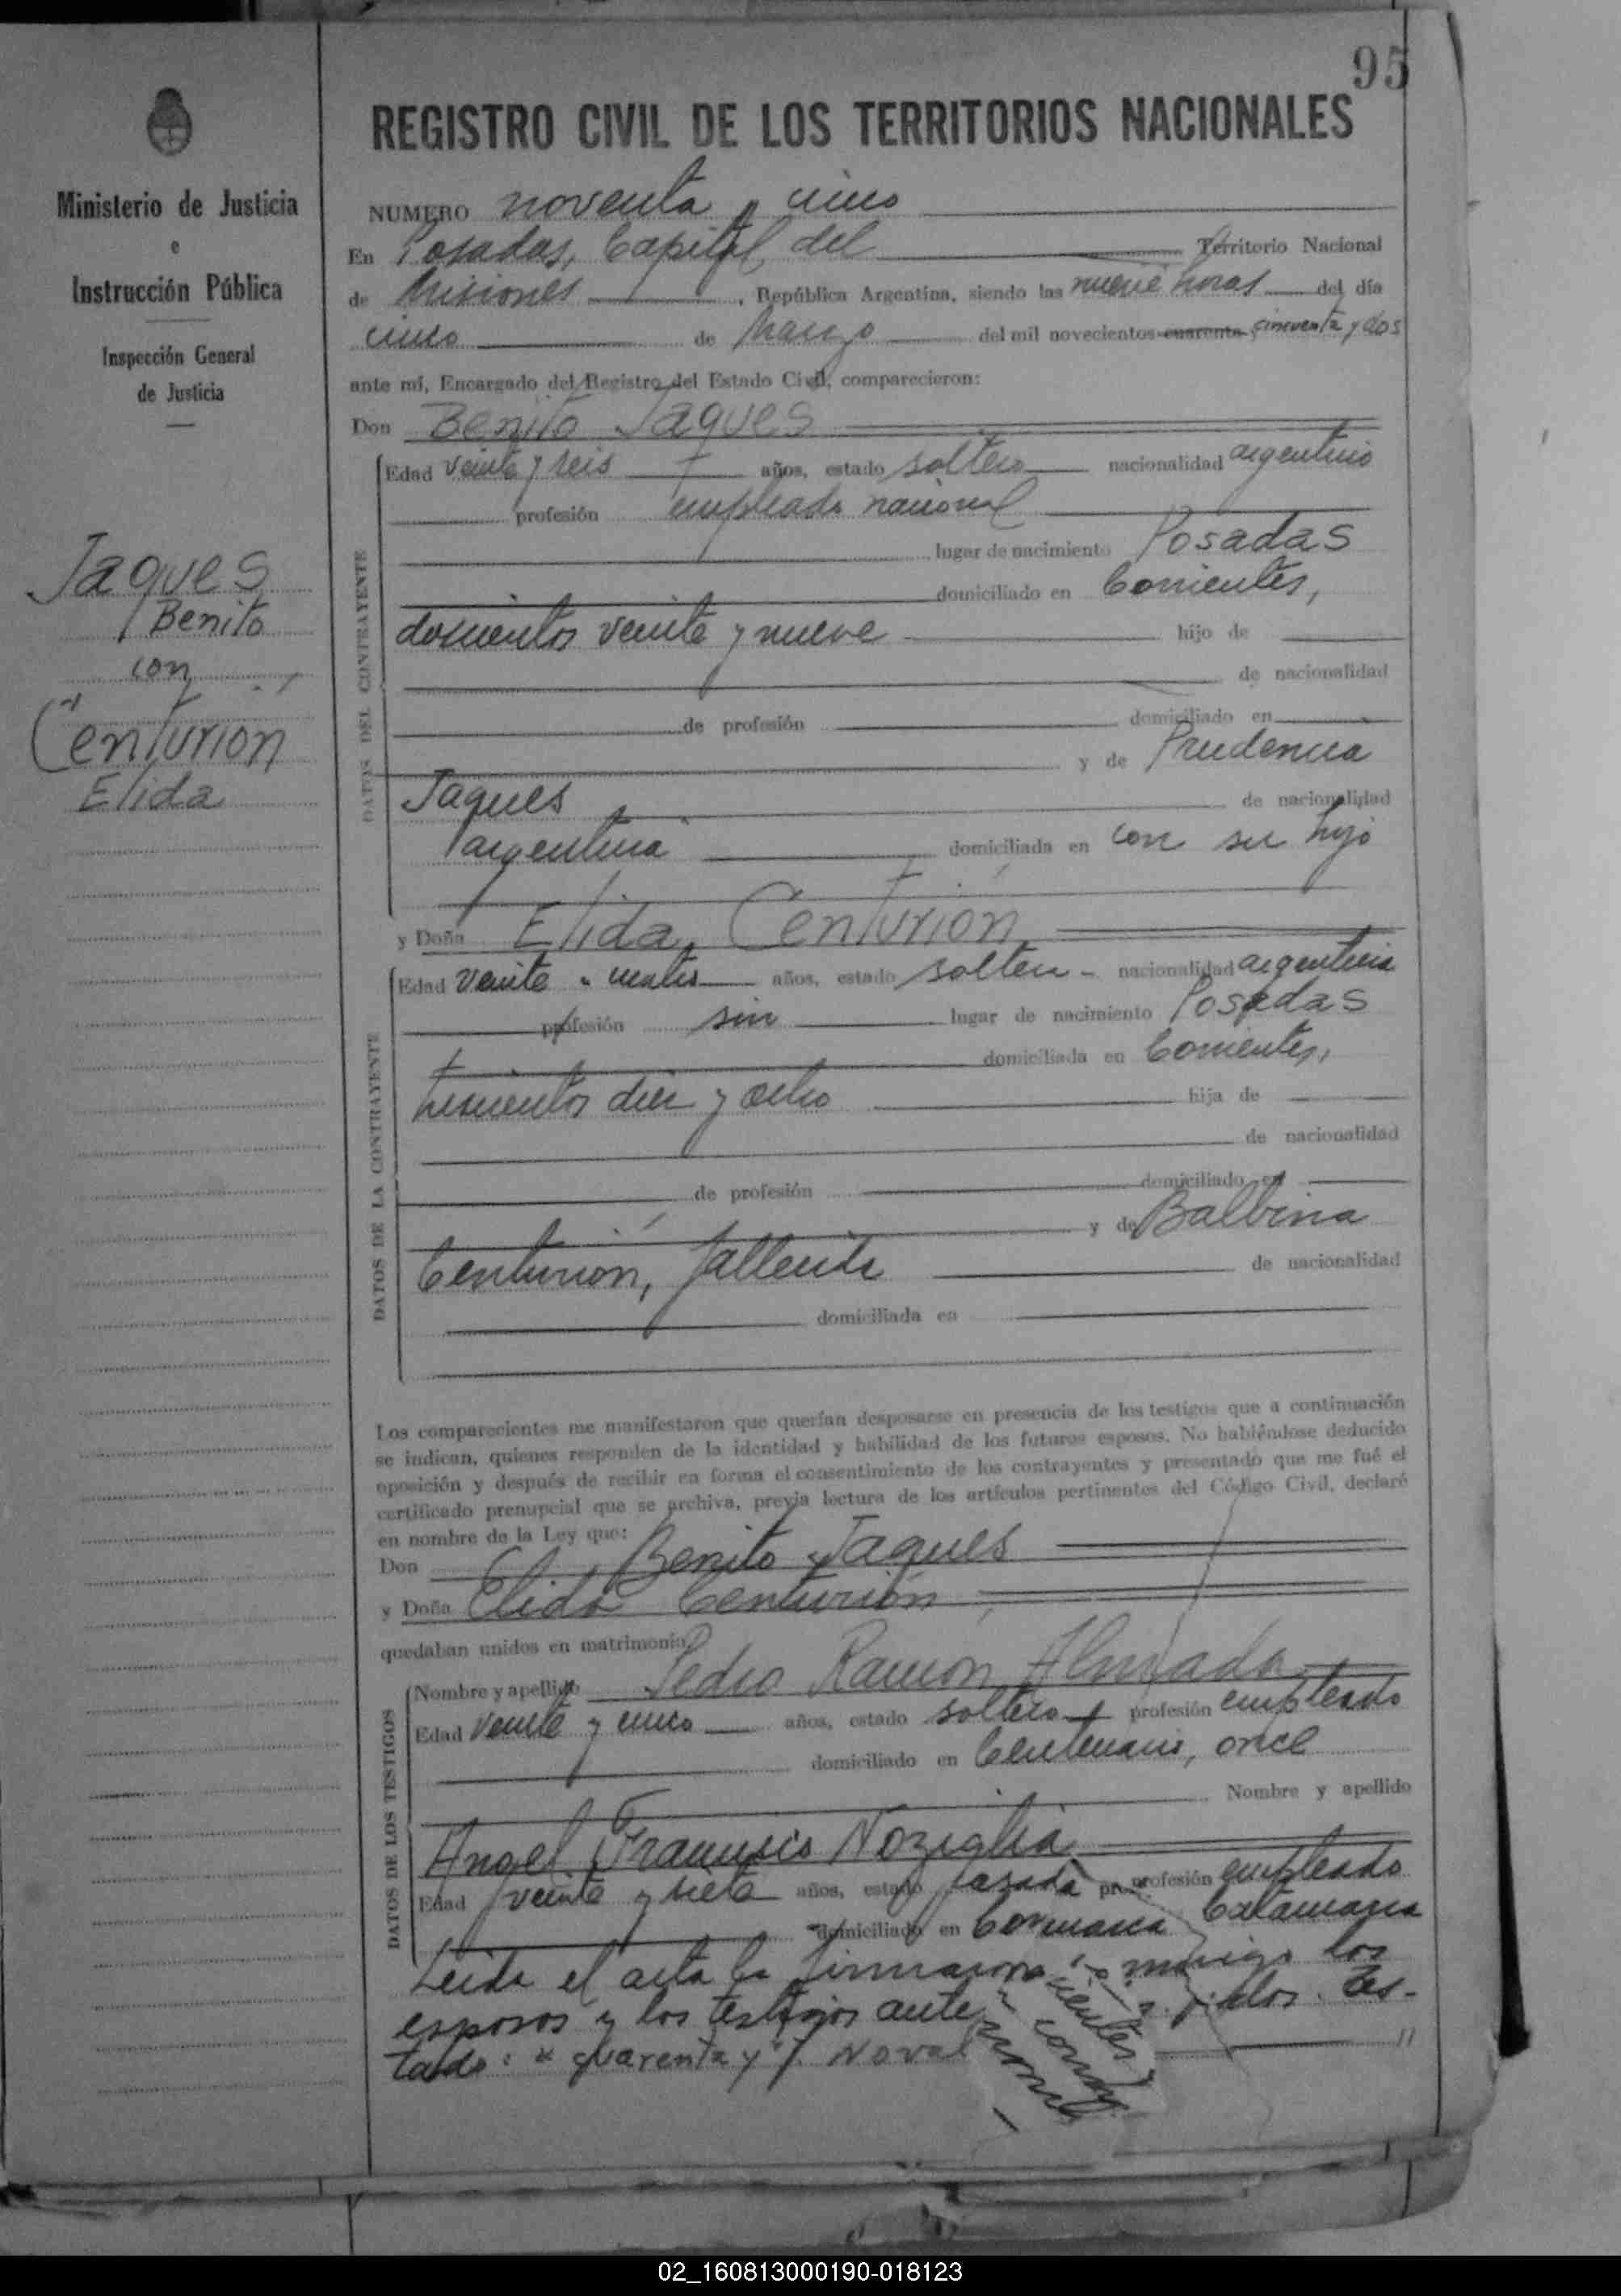 95
REGISTRO CIVIL DE LOS TERRITORIOS NACIONALES
Ministerio de Justicia
e
Instrucción Pública
Inspección General
de Justicia
Jaques
Benito
con
Centurión
Elida
NUMERO noventa y cinco
En Posadas, Capital del Territorio Nacional
de Misiones, República Argentina, siendo las nueve horas del día
cinco de Marzo del mil novecientos cuarenta y cincuenta y dos
ante mí, Encargado del Registro del Estado Civil, comparecieron:
Don Benito Jaques
DATOS DEL CONTRAYENTE
Edad veinte y seis años, estado soltero nacionalidad argentino
profesión empleado nacional
lugar de nacimiento Posadas
domiciliado en Corrientes,
doscientos veinte y nueve hijo de
de nacionalidad
de profesión domiciliado en
y de Prudencia
Jaques de nacionalidad
argentina domiciliada en con su hijo
y Doña Elida Centurión
DATOS DE LA CONTRAYENTE
Edad veinte y cuatro años, estado soltera nacionalidad argentina
profesión sin lugar de nacimiento Posadas
domiciliada en Corrientes,
trescientos diez y ocho hija de
de nacionalidad
de profesión domiciliado en
y de Balbina
Centurión, fallecida de nacionalidad
domiciliada en
Los comparecientes me manifestaron que querían desposarse en presencia de los testigos que a continuación
se indican, quienes responden de la identidad y habilidad de los futuros esposos. No habiéndose deducido
oposición y después de recibir en forma el consentimiento de los contrayentes y presentado que me fué el
certificado prenupcial que se archiva, previa lectura de los artículos pertinentes del Código Civil, declaré
en nombre de la Ley que:
Don Benito Jaques
y Doña Elida Centurión
quedaban unidos en matrimonio
DATOS DE LOS TESTIGOS
Nombre y apellido Pedro Ramón Almada
Edad veinte y cinco años, estado soltero profesión empleado
domiciliado en Centenario, once
Nombre y apellido
Angel Francisco Noziglia
Edad veinte y siete años, estado casado profesión empleado
domiciliado en Catamarca
Leida el acta la firmaron conmigo los
esposos y los testigos ante Tes-
tado: "cuarenta y". No val
02_160813000190-018123